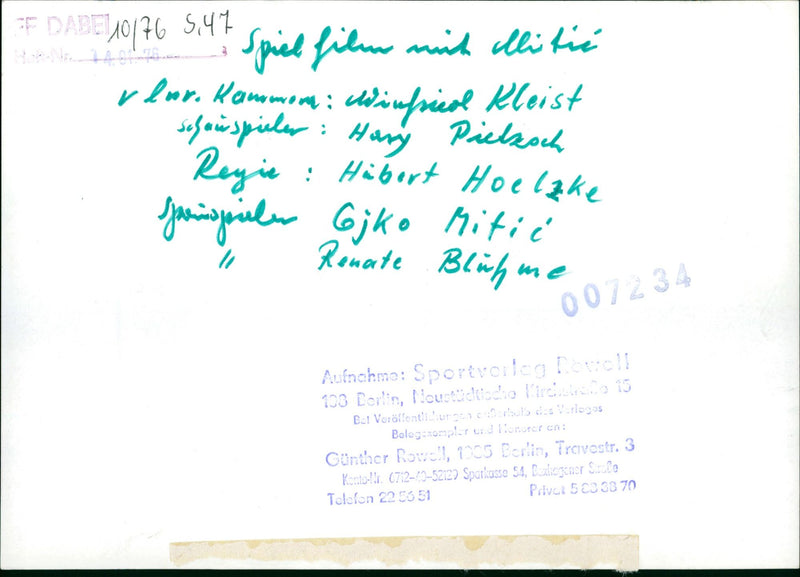 FF DABEI 10/76 S. 47
Heft-Nr.
Spielfilm mit Mitić
v lnr. Kammera: Winfried Kleist
Schauspieler: Harry Pietzsch
Regie: Hubert Hoelzke
Schauspieler Gojko Mitić
" Renate Blühme
007234
Aufnahme: Sportverlag Rowell
108 Berlin, Neustädtische Kirchstraße 15
Bei Veröffentlichungen außerhalb des Verlages
Belegexemplar und Honorar an:
Günther Rowell, 1035 Berlin, Travestr. 3
Konto-Nr. 6712-40-52129 Sparkasse 54, Straße
Telefon 22 56 51 Privat 5 88 38 70